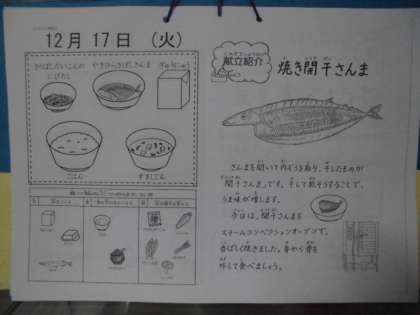 12月 17日 (火)
きりぼしだいこんの
にびたし
やきひらきぼしさんま
ぎゅうにゅう
ごはん
すましじる
献立紹介
焼き開干さんま
さんまを開いて内ぞうを取り、干したものが
「開干さんま」です。干して乾そうすることで、
うま味が増します。
今日は、開干さんまを
スチームコンベクションオーブンで、
香ばしく焼きました。身から骨を
外して食べましょう。